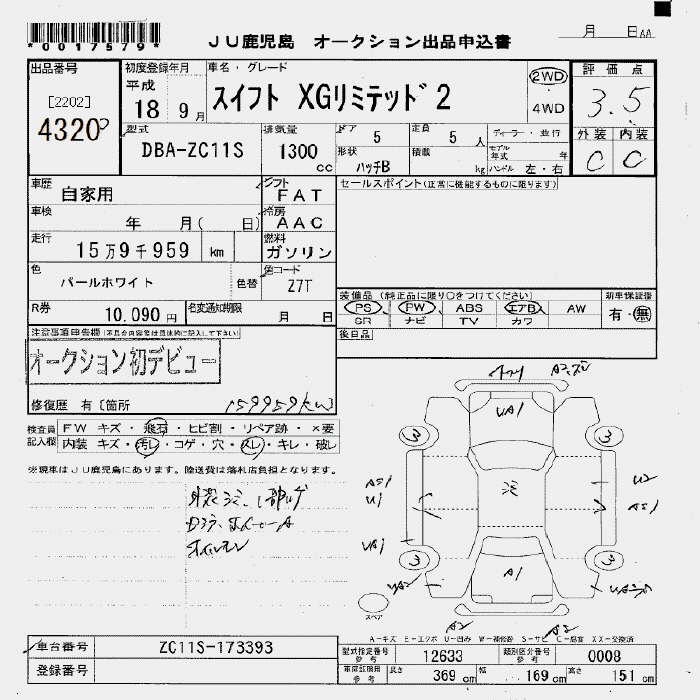 *0017579*
JU鹿児島 オークション出品申込書
月 日 AA
出品番号
[2202]
4320
初度登録年月
平成
18 9月
車名・グレード
スイフト XGリミテッド2
2WD
4WD
評価点
3.5
外装 内装
C C
型式
DBA-ZC11S
排気量
1300
cc
ドア 5
定員 5 人
形状
ハッチB
積載
kg
ディーラー・並行
モデル年式 年
ハンドル 左・右
車歴
自家用
シフト
FAT
車検
年 月( 日)
冷房
AAC
走行
15万9千959 km
燃料
ガソリン
色
パールホワイト
色替
色コード
Z7T
R券
10,090円
名変通知期限
月 日
セールスポイント(正常に機能するものに限ります)
装備品(純正品に限り○をつけてください)
PS PW ABS エアB AW
SR ナビ TV カワ
新車保証書
有・無
後日品
注意事項申告欄(不具合内容等は具体的に記入して下さい)
オークション初デビュー
修復歴 有[箇所
159959km)
検査員記入欄
FW キズ・飛石・ヒビ割・リペア跡・×要
内装 キズ・汚レ・コゲ・穴・スレ・キレ・破レ
※現車はJU鹿児島にあります。陸送費は落札店負担となります。
UA1
3 3
U1
U2
UA1
A1
3 3
UA2
A2
A2
スペア
A-キズ E-エクボ U-凹み W-補修跡 S-サビ C-腐食 XX-交換済
車台番号
ZC11S-173393
登録番号
型式指定番号
参考
12633
類別区分番号
参考
0008
車庫証明用
参考
長さ
369 cm
幅
169 cm
高さ
151 cm